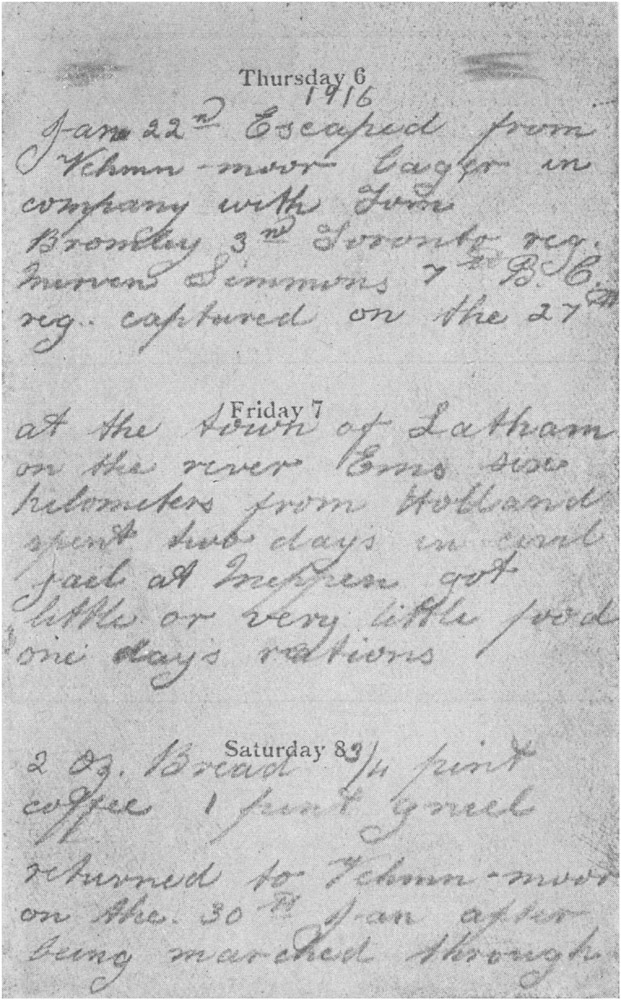 Thursday 6
1916
Jan 22nd Escaped from
Vehmn-moor lager in
company with Tom
Bromley 3rd Toronto reg.
Merven Simmons 7th B.C.
reg. captured on the 27th
Friday 7
at the town of Latham
on the river Ems six
kilometers from Holland
spent two days in civil
jail at Meppen got
little or very little food
one days rations
Saturday 8
2 Oz. Bread 3/4 pint
coffee 1 pint gruel
returned to Vehmn-moor
on the. 30th Jan after
being marched through